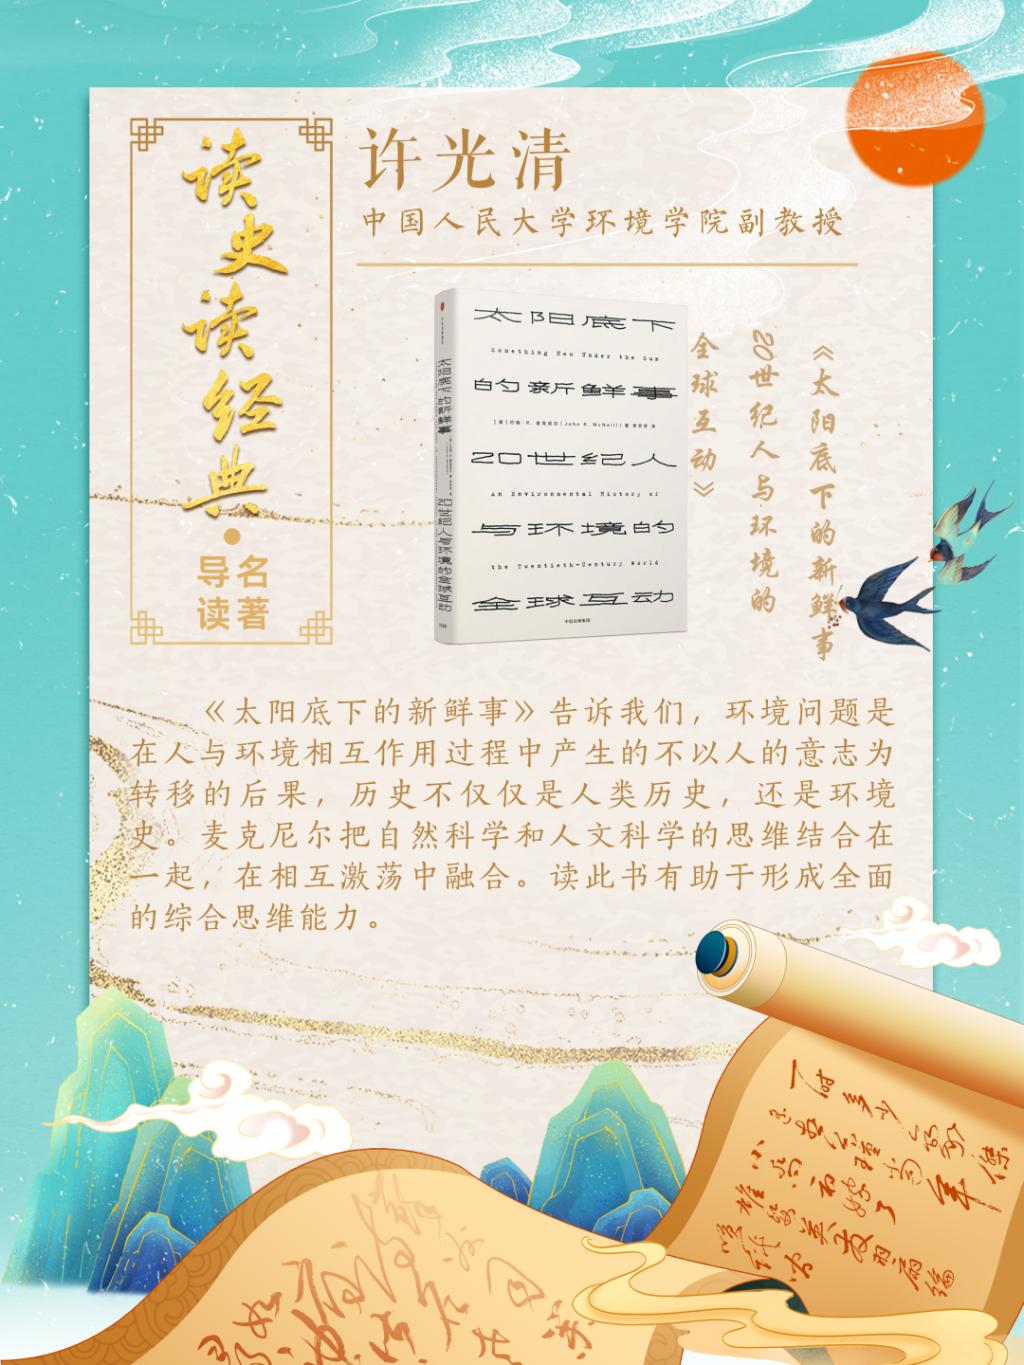 读史读经典
导读
名著
许光清
中国人民大学环境学院副教授
太阳底下
Something New Under the Sun
的新鲜事
20世纪人
An Environmental History of
与环境的
the Twentieth-Century World
全球互动
中信出版集团
太阳底下的新鲜事
20世纪人与环境的全球互动
《太阳底下的新鲜事
20世纪人与环境的
全球互动》
《太阳底下的新鲜事》告诉我们，环境问题是
在人与环境相互作用过程中产生的不以人的意志为
转移的后果，历史不仅仅是人类历史，还是环境
史。麦克尼尔把自然科学和人文科学的思维结合在
一起，在相互激荡中融合。读此书有助于形成全面
的综合思维能力。